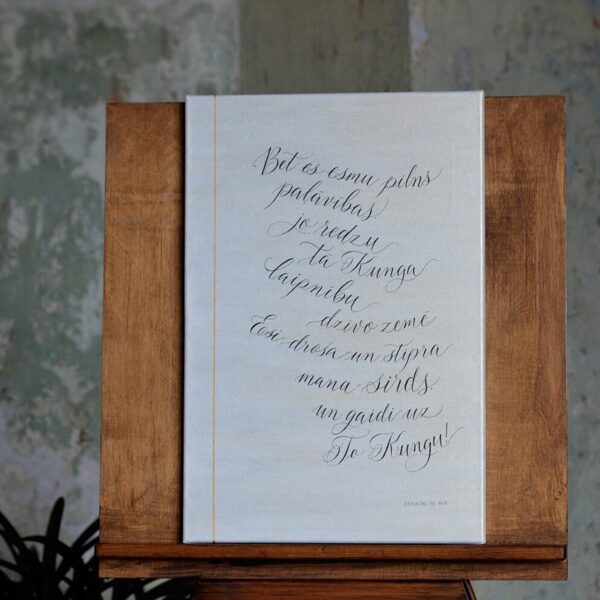 Bet es esmu pilns
paļāvības,
jo redzu
tā Kunga
laipnību
dzīvo zemē
Esi droša un stipra
mana sirds
un gaidi uz
To Kungu!